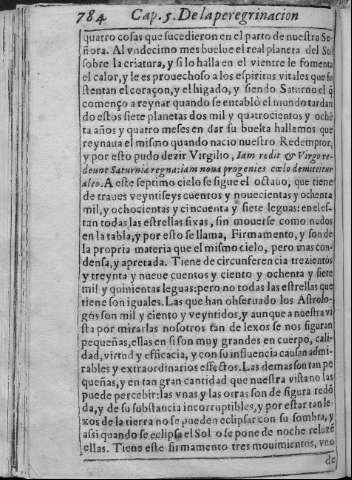 784 Cap. 5. De la peregrinacion
quatro cosas que sucedieron en el parto de nuestra Se-
ñora. Al vndecimo mes buelue el real planeta del Sol
sobre la criatura, y si lo halla en el vientre le fomenta
el calor, y le es prouechoso a los espiritus vitales que su-
stentan el coraçon, y el higado, y siendo Saturno el q̃
començo a reynar quando se entabló el mundo tardan
do estos siete planetas dos mil y quatrocientos y ochẽ
ta años y quatro meses en dar su buelta hallemos que
reynaua el mismo quando nacio nuestro Redemptor,
y por esto pudo dezir Virgilio, Iam redit & Virgo re-
deunt Saturnia regna: iam noua progenies cœlo demittitur
alto. A este septimo cielo se sigue el octauo, que tiene
de traues veyntiseys cuentos y nouecientos y ochenta
mil, y ochocientas y cincuenta y siete leguas: en el es-
tan todas las estrellas fixas, sin mouerse como nudos
en la tabla, y por esto se llama, Firmamento, y son de
la propria materia que el mismo cielo, pero mas con-
densa, y apretada. Tiene de circunferencia trezientos
y treynta y nueue cuentos y ciento y ochenta y siete
mil y quinientas leguas: pero no todas las estrellas que
tiene son iguales. Las que han obseruado los Astrolo-
gos son mil y ciento y veyntidos, y aunque a nuestra vi
sta por mirarlas nosotros tan de lexos se nos figuran
pequeñas, ellas en si son muy grandes en cuerpo, cali-
dad, virtud y efficacia, y con su influencia causan admi-
rables y extraordinarios effectos. Las demas son tan pe
queñas, y en tan gran cantidad que nuestra vista no las
puede percebir: las vnas y las otras son de figura redõ
da, y de su substancia incorruptibles, y por estar tan le-
xos de la tierra no se pueden eclipsar con su sombra, y
assi quando se eclipsa el Sol o se pone de noche reluzẽ
ellas. Tiene este firmamento tres mouimientos, vno
de